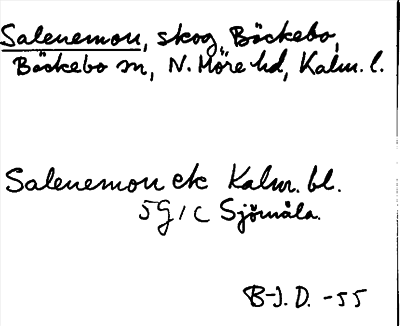 Salenemon, skog, Bäckebo,
Bäckebo sn, N. Möre hd, Kalm. l.
Salenemon ek Kalm. bl.
5G1c Sjömåla.
B-I. D. -55